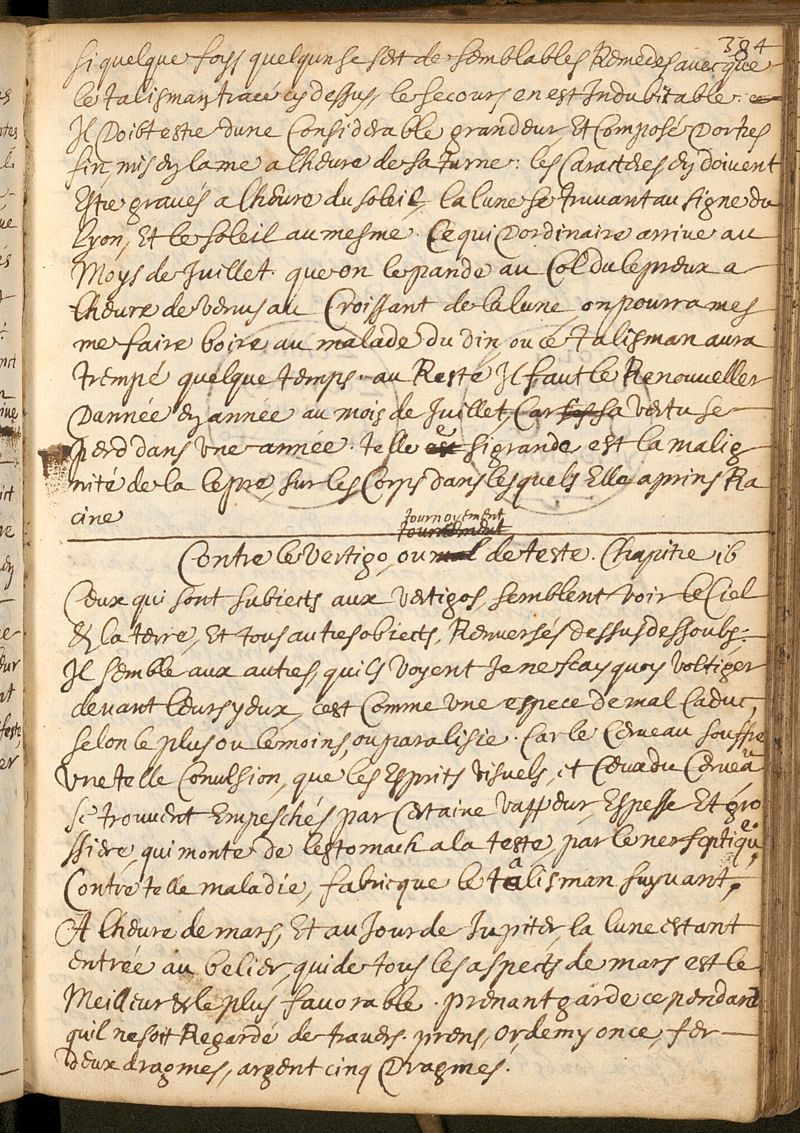 384
si quelque foys quelqun se sert de semblables Remedes avecque
le talisman tracé cy dessus, le secours en est Indubitable. ce
Il Doibt estre dune Considerable grandeur, Et Composé Dor tres
fin, mis en lame a lheure de saturne: les Caracteres en doivent
Estre gravés a lheure du soleil, la lune se truvant au signe du
Lyon, Et le soleil au mesme. Ce qui Dordinaire arrive au
Moys de Juillet. que on le pande au Col du lepreux a
lheure de Venus au Croissant de la lune on pourra mes
me faire boire au malade du vin, ou ce talisman aura
trempé quelque temps. au Reste Il faut le Renouveller
Dannée en année au mois de Juillet, Car sa vertu se
perd dans une année. telle e si grande est la malig
nité de la lepre, sur les Corps dans lesquels Elle a prins Ra
cine
tournoyement
tournement
Contre le Vertigo, ou mal de teste. Chapitre 16
Ceux qui sont subiects aux vertigos, semblent voir le Ciel
Et la terre, Et tous autres obiects, Renversés dessus dessoubs;
Il semble aux autres, quils voyent Je ne scay quoy voltiger
devant leurs yeux, cest Comme une espece de mal Caduc,
selon le plus ou le moins, ou paralisie. Car le Cerveau souffre
Une telle Convulsion, que les Esprits visuels, et Ceux du Cerveau
se trouvent Empeschés par Certaine vappeur, Espesse Et gro
ssiere, qui monte de lestomach a la teste, par le nerf optique,
Contre telle maladie, fabricque le talisman suyvant,
A lheure de mars, Et au Jour de Jupiter, la lune estant
entrée au belier, qui de tous les aspects de mars est le
Meilleur et le plus favorable. prenant garde cependant
quil ne soit Regardé de travers. prens, or demy once, fer
deux dragmes, argent cinq Dragmes.